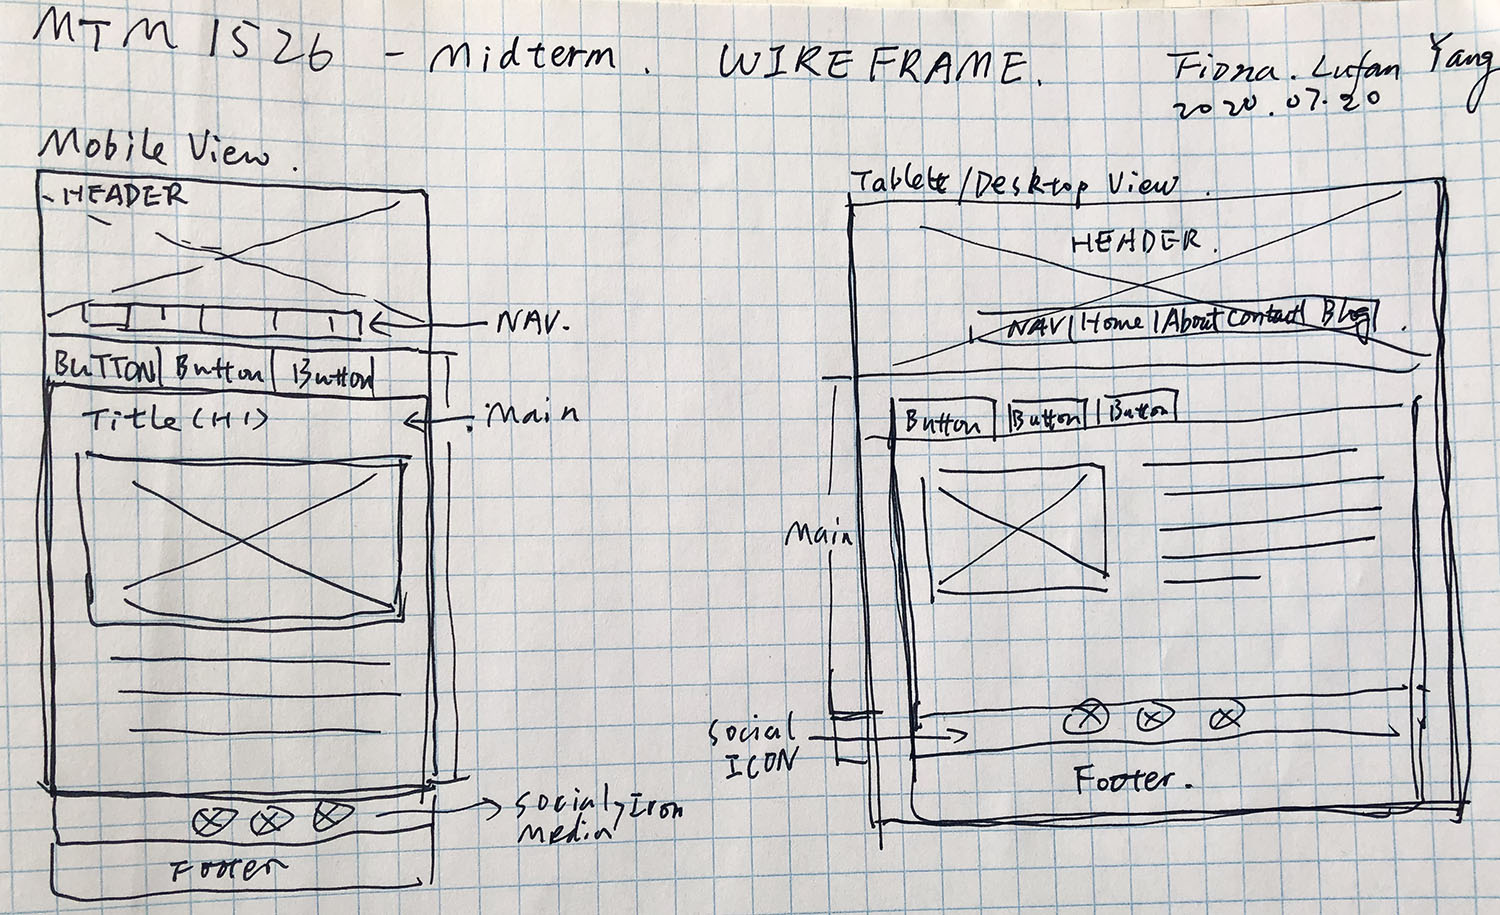 MTM 1526 - Midterm. WIREFRAME.
Fiona. Lufan Yang
2020.07.20
Mobile View.
HEADER
NAV.
BUTTON Button Button
Title (H1)
Main
Social Icon
Media
Footer
Tablett/Desktop View.
HEADER.
NAV Home About Contact Blog
Button Button Button
Main
Social
ICON
Footer.